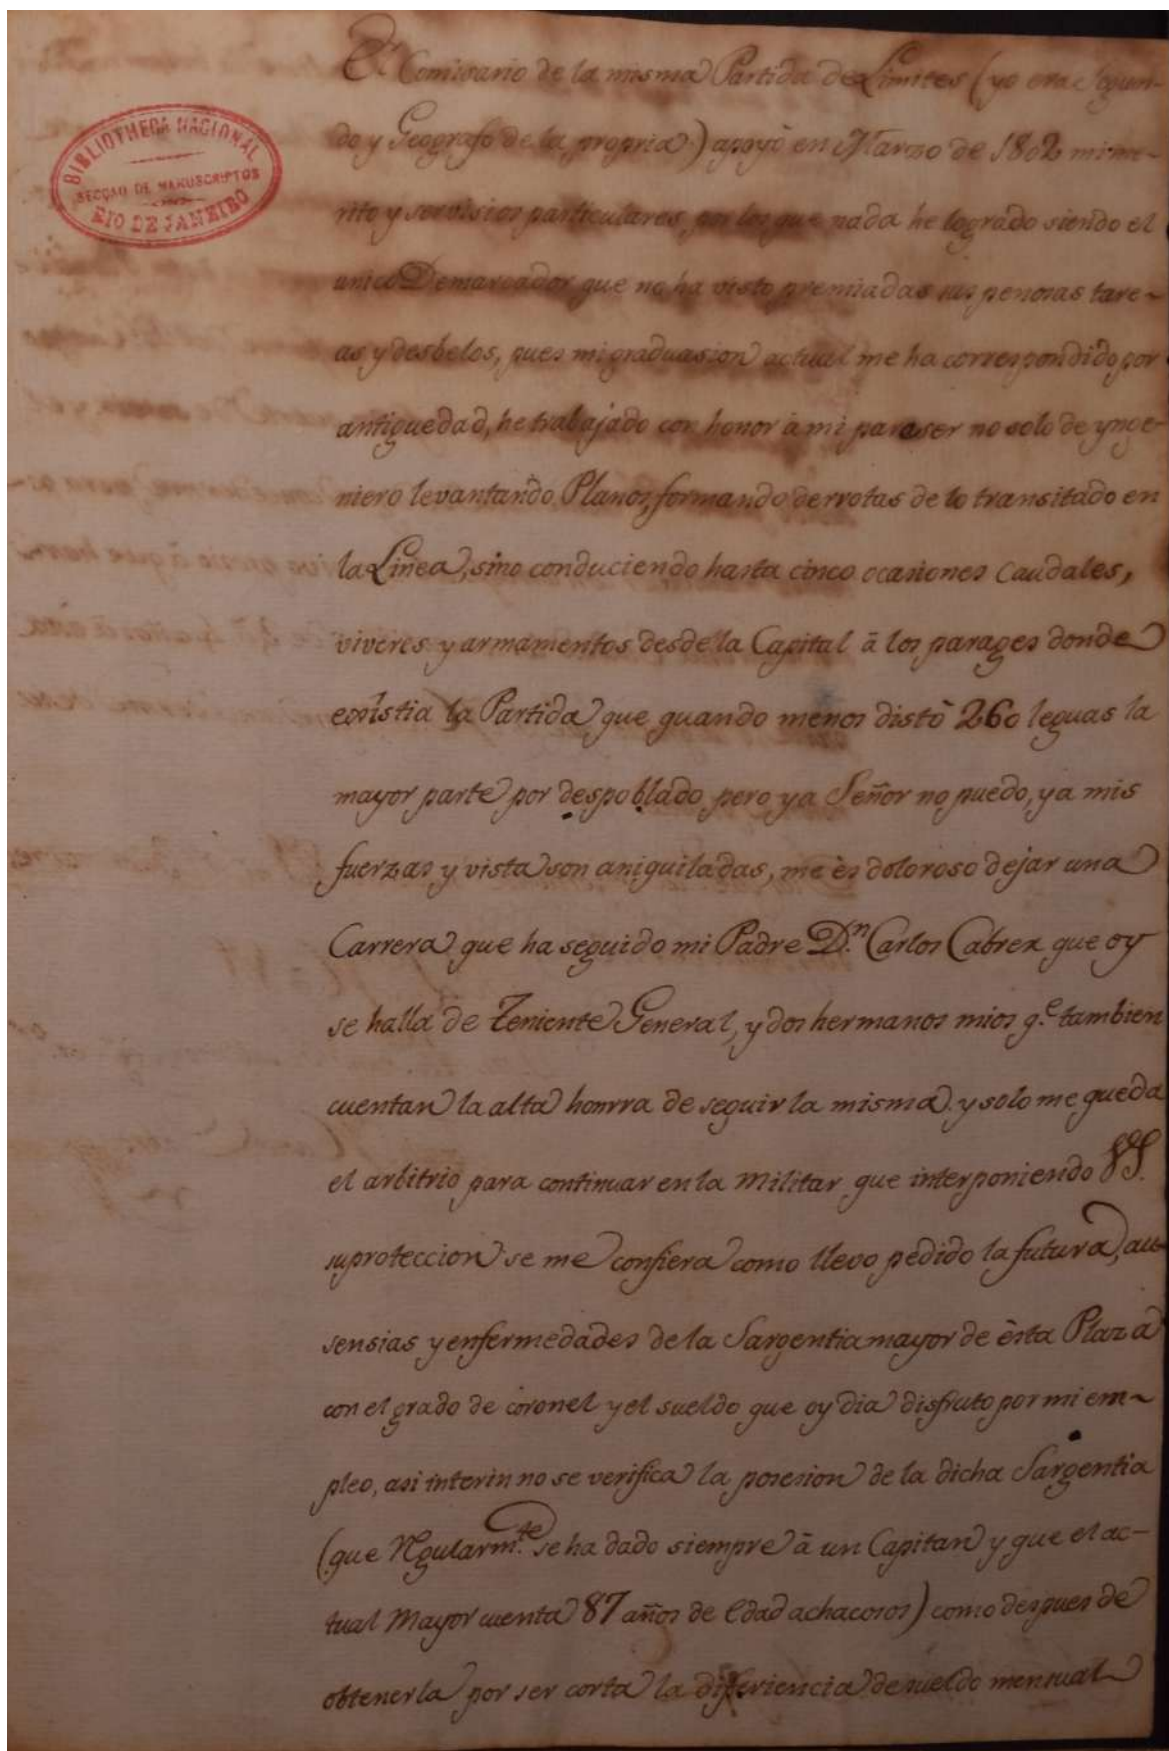 BIBLIOTHECA NACIONAL
SECÇÃO DE MANUSCRIPTOS
RIO DE JANEIRO
El Comisario de la misma Partida de Limites (yo era Segun-
do y Geografo de la propria) apoyó en Marzo de 1802 mi me-
rito y servisios particulares, por los que nada he logrado siendo el
unico Demarcador que no ha visto premiadas sus penosas tare-
as y desbelos, pues mi graduasion actual me ha correspondido por
antiguedad, he trabajado con honor à mi pareser no solo de ynge-
niero levantando Planos, formando derrotas de lo transitado en
la Linea, sino conduciendo hasta cinco ocasiones Caudales,
viveres y armamentos desde la Capital à los parages donde
exîstia la Partida que quando menos distó 260 leguas la
mayor parte por despoblado pero ya Señor no puedo, ya mis
fuerzas y vista son aniquiladas, me ès doloroso dejar una
Carrera que ha seguido mi Padre D.n Carlos Cabrer que oy
se halla de Teniente General, y dos hermanos mios q.e tambien
cuentan la alta honrra de seguir la misma y solo me queda
el arbitrio para continuar en la Militar que interponiendo
su proteccion se me confiera como llevo pedido la futura, au-
sensias y enfermedades de la Sargentia mayor de èsta Plaza
con el grado de coronel y el sueldo que oy dia disfruto por mi em-
pleo, asi interin no se verifica la posesion de la dicha Sargentia
(que Regularm.te se ha dado siempre à un Capitan y que el ac-
tual Mayor cuenta 87 años de Edad achacosos) como despues de
obtenerla por ser corta la diferiencia de sueldo mensual